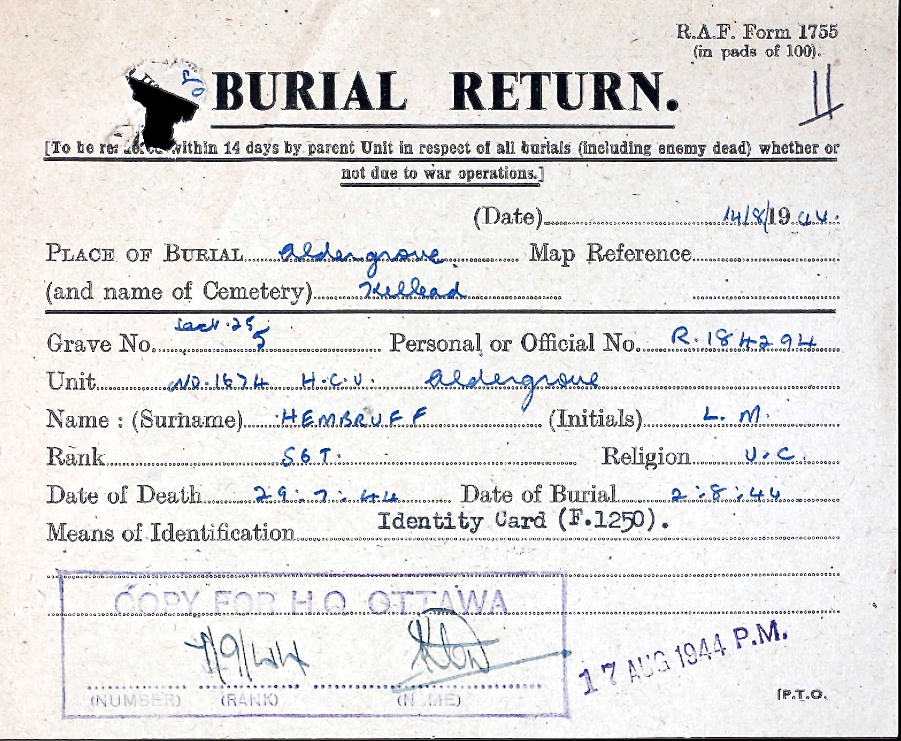 R.A.F. Form 1755
(in pads of 100).
11
BURIAL RETURN.
[To be re within 14 days by parent Unit in respect of all burials (including enemy dead) whether or
not due to war operations.]
(Date) 14/8/1944.
PLACE OF BURIAL Aldergrove. Map Reference
(and name of Cemetery) Killead
Sect. 25
Grave No. 5 Personal or Official No. R.184294
Unit No.1674 H.C.U. Aldergrove
Name : (Surname) HEMBRUFF (Initials) L. M.
Rank SGT. Religion U.C.
Date of Death 29:7:44 Date of Burial 2:8:44
Means of Identification Identity Card (F.1250).
COPY FOR H.Q. OTTAWA
7/9/44
17 AUG 1944 P.M.
(NUMBER) (RANK) (NAME)
[P.T.O.